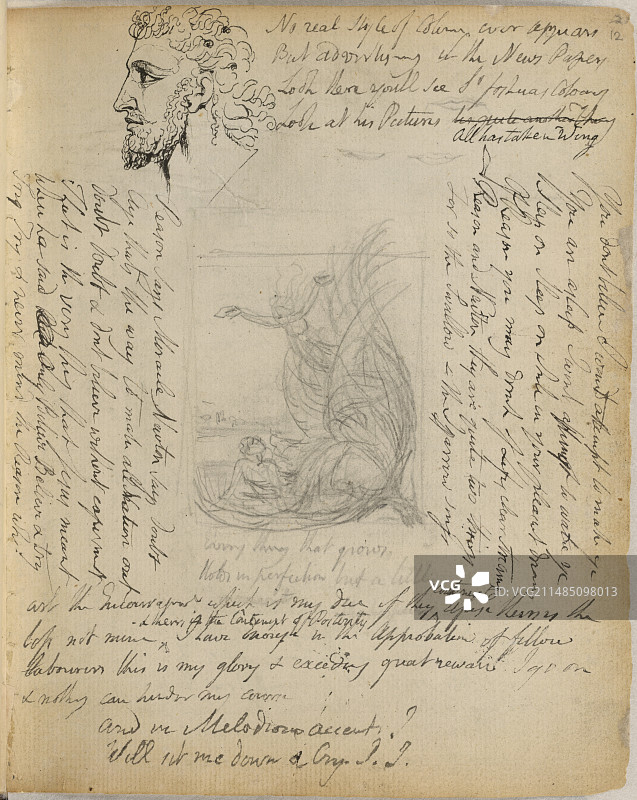 12
No real Style of Colouring ever appears
But advertising in the News Papers
Look there you'll see Sr Joshuas Colouring
Look at his Pictures his quite another Thing
All has taken Wing
You dont believe I wont attempt to make ye
You are asleep I wont attempt to wake ye
Sleep on Sleep on while in your pleasant dreams
Of Reason you may drink of Lifes clear streams
Reason and Newton they are quite two things
For so the Swallow & the Sparrow sings
Reason says Miracle Newton says Doubt
Aye thats the way to make all Nature out
Doubt Doubt & dont believe without experiment
That is the very thing that Jesus meant
When he said Only Believe Believe & try
Try Try & never mind the Reason why
Every thing that grows
Holds in perfection but a little
which is my due
& theirs is the Contempt of Posterity
loss not mine I have enough in the Approbation of fellow
labourers this is my glory & exceeding great reward I go on
& nothing can hinder my course
and in Melodious accents I
Will sit me down & Cry. I. I.
VCG
VCG.COM
ID: VCG211485098013